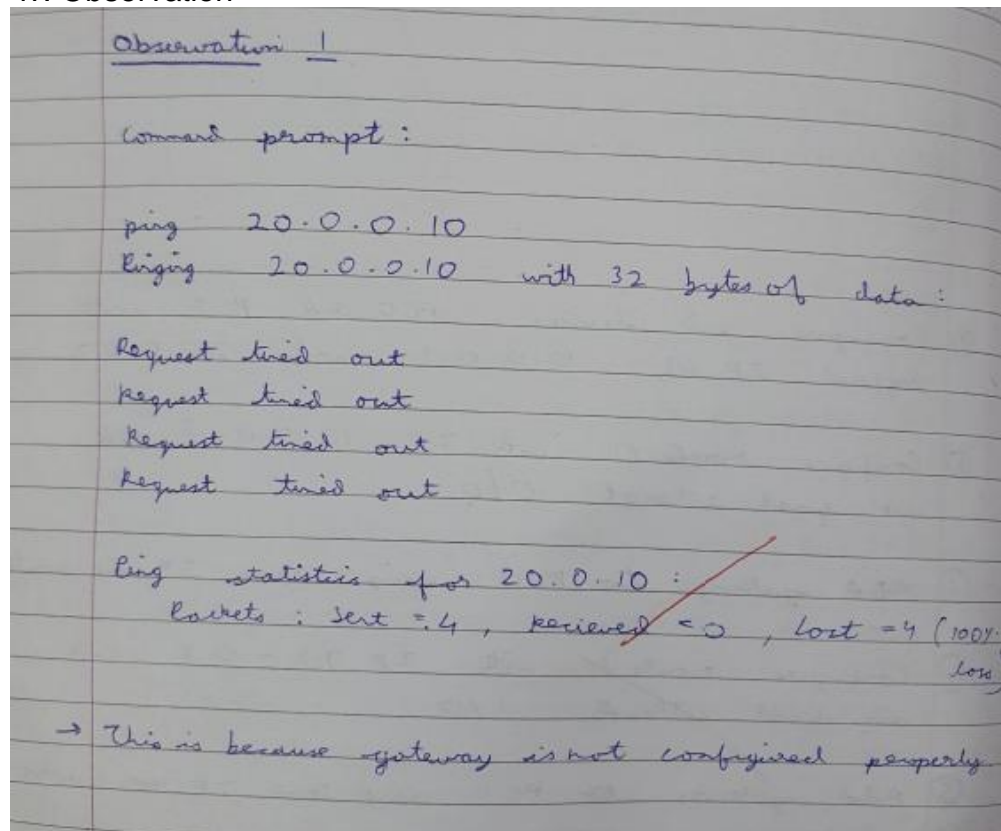 Observation 1
Command prompt :
ping 20.0.0.10
Pinging 20.0.0.10 with 32 bytes of data :
Request timed out
Request timed out
Request timed out
Request timed out
Ping statistics for 20.0.10 :
Packets : Sent = 4, Recieved = 0, Lost = 4 (100%
loss)
→ This is because gateway is not configured properly